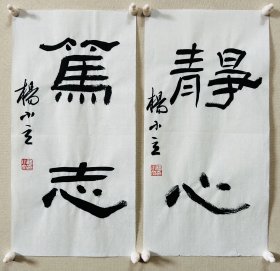 靜心
楊小立
篤志
楊小立